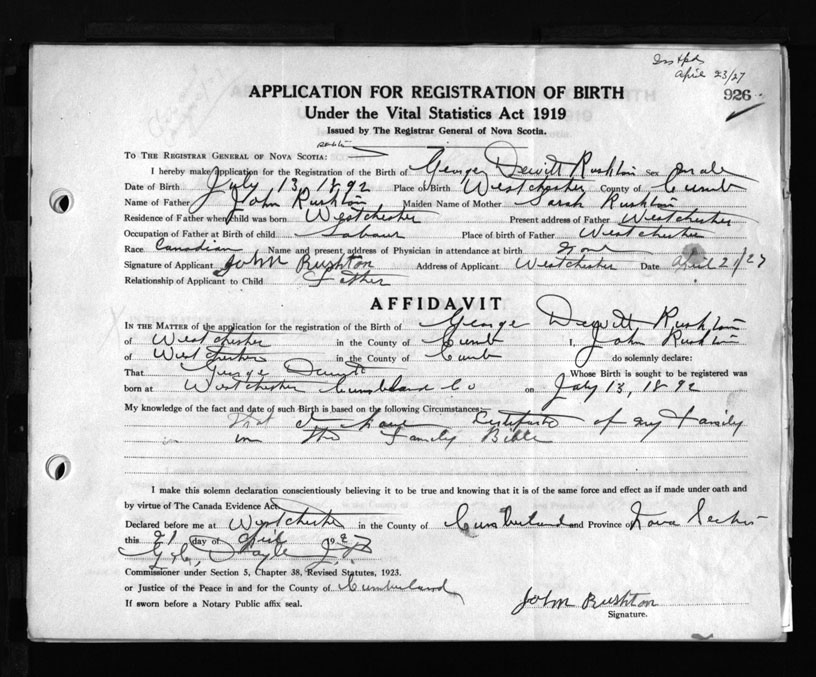 April 23/27
APPLICATION FOR REGISTRATION OF BIRTH
926
Under the Vital Statistics Act 1919
Issued by The Registrar General of Nova Scotia.
TO THE REGISTRAR GENERAL OF NOVA SCOTIA:
I hereby make application for the Registration of the Birth of George Dewitt Rushton Sex Male
Date of Birth July 13, 1892 Place of Birth Westchester County of Cumb
Name of Father John Rushton Maiden Name of Mother Sarah Rushton
Residence of Father when child was born Westchester Present address of Father Westchester
Occupation of Father at Birth of child Labour Place of birth of Father Westchester
Race Canadian Name and present address of Physician in attendance at birth None
Signature of Applicant John Rushton Address of Applicant Westchester Date April 21/27
Relationship of Applicant to Child Father
AFFIDAVIT
IN THE MATTER of the application for the registration of the Birth of George Dewitt Rushton
of Westchester in the County of Cumb I, John Rushton
of Westchester in the County of Cumb do solemnly declare:
That George Dewitt Whose Birth is sought to be registered was
born at Westchester Cumberland Co on July 13, 1892
My knowledge of the fact and date of such Birth is based on the following Circumstances:—
That I have of my Family
in the Family Bible
I make this solemn declaration conscientiously believing it to be true and knowing that it is of the same force and effect as if made under oath and
by virtue of The Canada Evidence Act.
Declared before me at Westchester in the County of Cumberland and Province of Nova Scotia
this 21 day of April 1927
J.P.
Commissioner under Section 5, Chapter 38, Revised Statutes, 1923.
or Justice of the Peace in and for the County of Cumberland
If sworn before a Notary Public affix seal.
John Rushton
Signature.